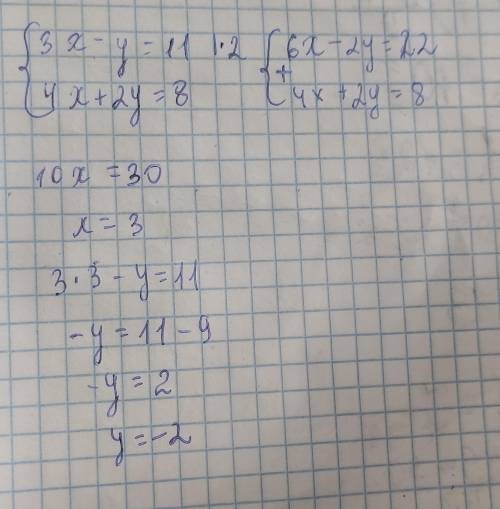 3x - y = 11 |·2 6x - 2y = 22
+
4x + 2y = 8 4x + 2y = 8
10x = 30
x = 3
3·3 - y = 11
-y = 11 - 9
-y = 2
y = -2